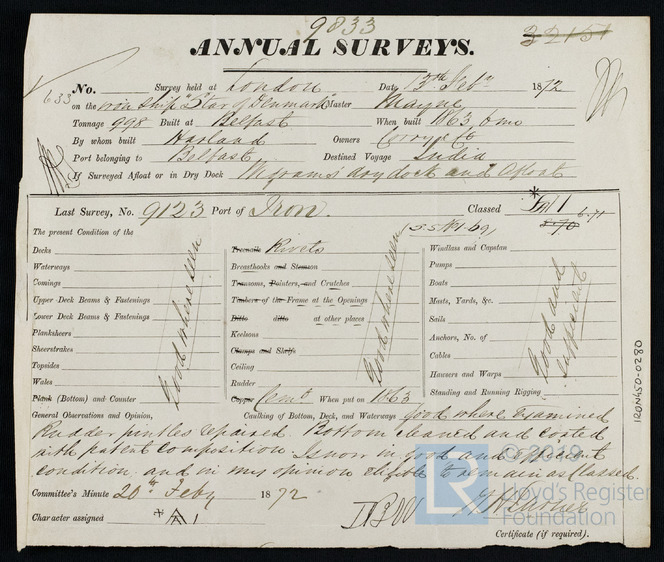 9833
22151
ANNUAL SURVEYS.
No. Survey held at London Date 13th Feby 1872
633
on the iron ship "Star of Denmark" Master Mayne
Tonnage 998 Built at Belfast When built 1863 6mo
By whom built Harland Owners Corry & Co
Port belonging to Belfast Destined Voyage India
If Surveyed Afloat or in Dry Dock Wigrams' dry dock and Afloat
Last Survey, No. 9123 Port of Iron. Classed A1
6.71
8.70
S.S. No 1-69
The present Condition of the
Decks
Waterways
Comings
Upper Deck Beams & Fastenings
Lower Deck Beams & Fastenings
Planksheers
Sheerstrakes
Topsides
Wales
Plank (Bottom) and Counter
Good where seen
Treenails Rivets
Breasthooks and Stemson
Transoms, Pointers, and Crutches
Timbers of the Frame at the Openings
Ditto ditto at other places
Keelsons
Clamps and Shelfs
Ceiling
Rudder
Copper Cemt When put on 1863
Good where seen
Windlass and Capstan
Pumps
Boats
Masts, Yards, &c.
Sails
Anchors, No. of
Cables
Hawsers and Warps
Standing and Running Rigging
Good and sufficient
General Observations and Opinion, Caulking of Bottom, Deck, and Waterways Good where examined
Rudder pintles repaired. Bottom cleaned and coated
with patent composition. Is now in good and efficient
condition and in my opinion eligible to remain as classed.
Committee's Minute 20th Feby 1872
Character assigned A1
Certificate (if required).
IRON450-0280
© 2019
LR
Lloyd's Register
Foundation